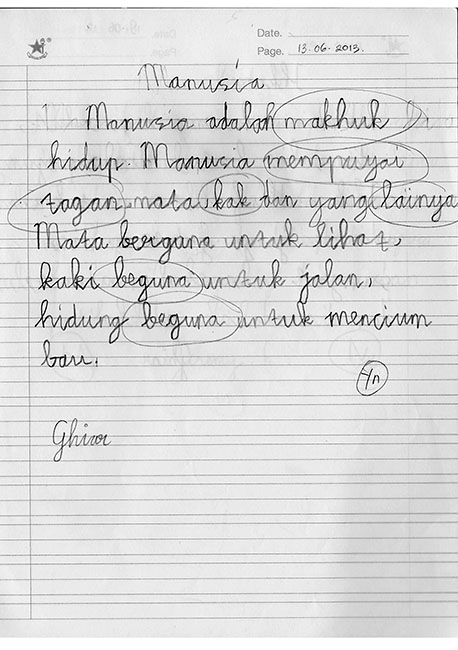 Date.
Page. 13.06.2013.
Manusia
Manusia adalah makhuk
hidup. Manusia mempuyai
tagan, mata, kak dan yang lainya
Mata berguna untuk lihat,
kaki beguna untuk jalan,
hidung beguna untuk mencium
bau.
Ghiza